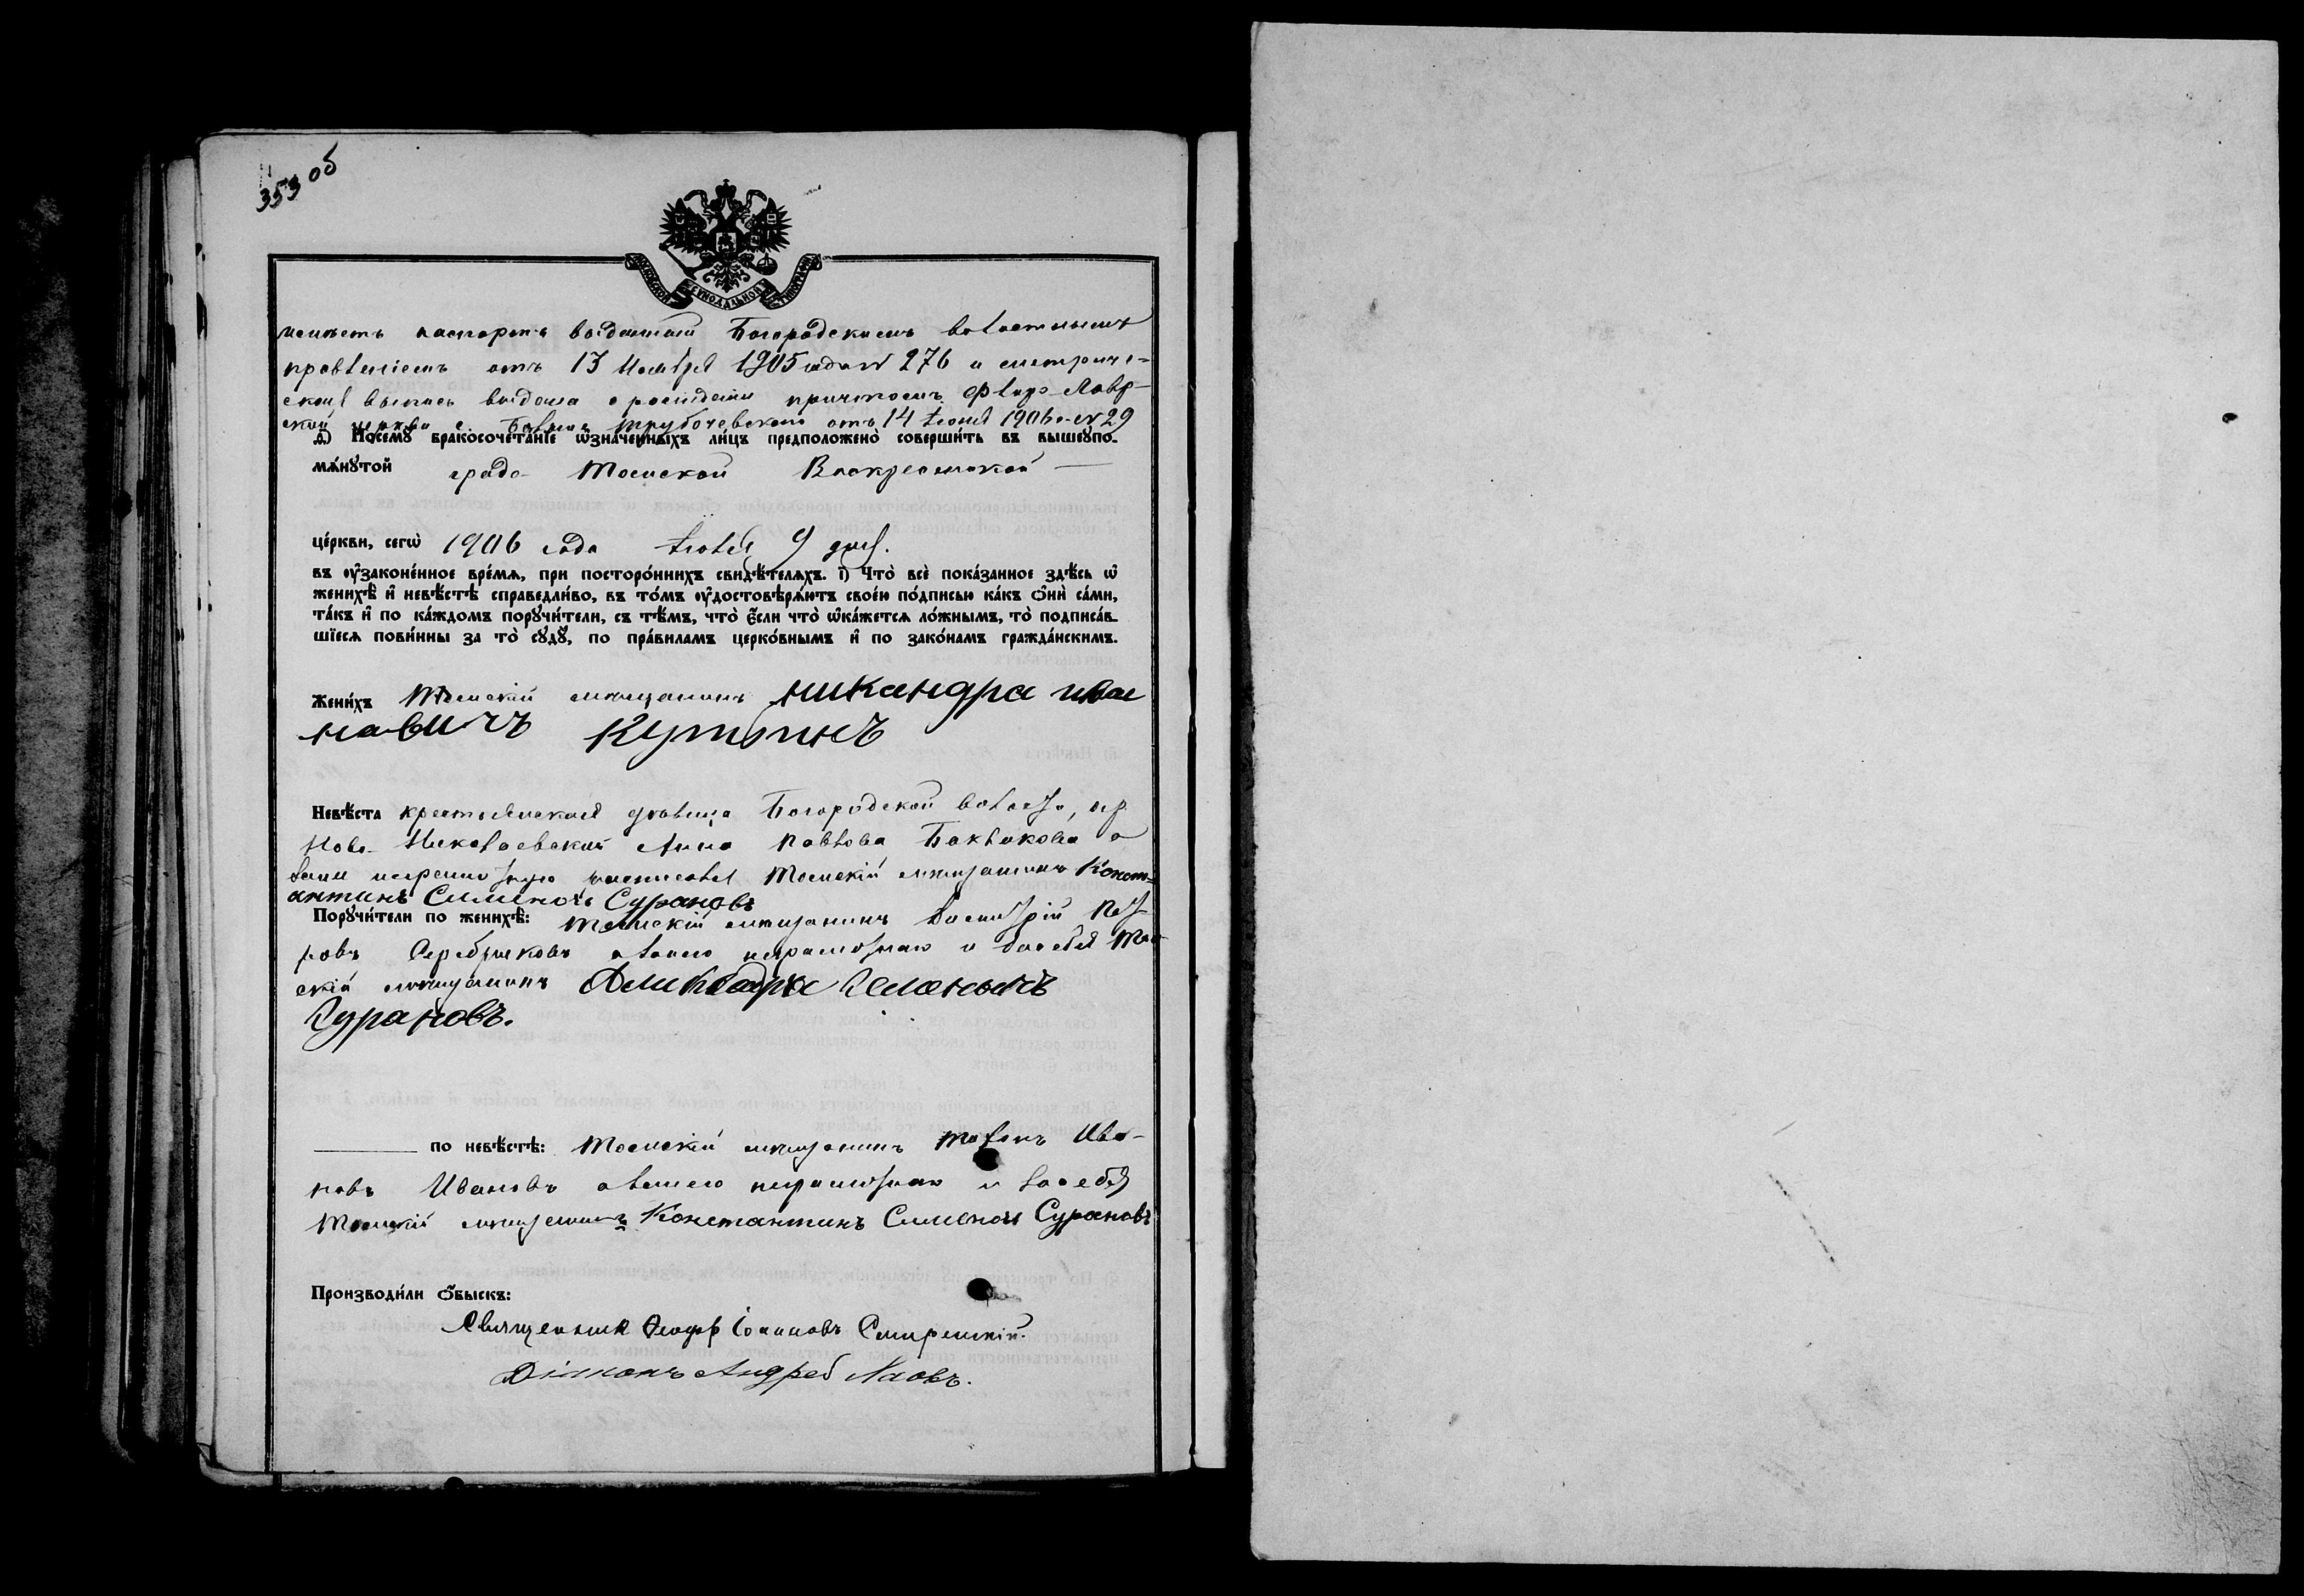 353 об
СУНОДАЛЬНОЙ
паспортъ выданный Богородскимъ волостнымъ
правленіемъ отъ 13 Ноября 1905 года № 276 и метриче-
ская выпись выдана о рожденіи причтомъ Флоро-Лавр-
ской церкви с. Трубочевского отъ 14 Іюня 1906 г. № 29
д) Посемꙋ̀ бракосочета́нїе ѡ҆зна́ченныхъ ли́цъ предположено̀ соверши́ть въ вышеꙋпо-
мѧ́нꙋтой градо- Томской Воскресенской —
це́ркви, сегѡ̀ 1906 года Іюля 9 дня.
въ ᲂу҆законе́нное вре́мѧ, при посторо́ннихъ свидѣ́телѧхъ. і) Что̀ всѐ пока́занное здѣ́сь ѡ҆
женихѣ̀ и҆ невѣ́стѣ справедли́во, въ то́мъ ᲂу҆достовѣрѧ́ютъ свое́ю по́дписью ка́къ ѻ҆нѝ са́ми,
та́къ и҆ по ка́ждомъ порꙋчи́тели, съ тѣ́мъ, что̀ є҆́сли что̀ ѡ҆ка́жетсѧ ло́жнымъ, то̀ подписа́в-
шїесѧ пови́нны за то̀ сꙋдꙋ̀, по пра́виламъ церко́внымъ и҆ по зако́намъ гражда́нскимъ.
Жени́хъ Томскій мѣщанинъ никандра ива
навичъ
Невѣ́ста крестьянская дѣвица Богородской волости,
Ново-Николаевской Анна Павлова Баклакова а
за неграмотную росписался Томскій мѣщанинъ Конст-
антинъ Сименовъ Сурановъ
Порꙋчи́тели по женихѣ̀: Томскій мѣщанинъ Димитрій Пет-
ровъ Серебряковъ а за него неграмотнаго и за себя Том-
скій мѣщанинъ
Сурановъ.
по невѣ́стѣ: Томскій мѣщанинъ Ива-
новъ Ивановъ а за него неграмотнаго и за себя
Томскій мѣщанинъ Константинъ Сименовъ Сурановъ
Производи́ли ѻ҆́быскъ:
Священникъ Іоанновъ
Діаконъ Андрей